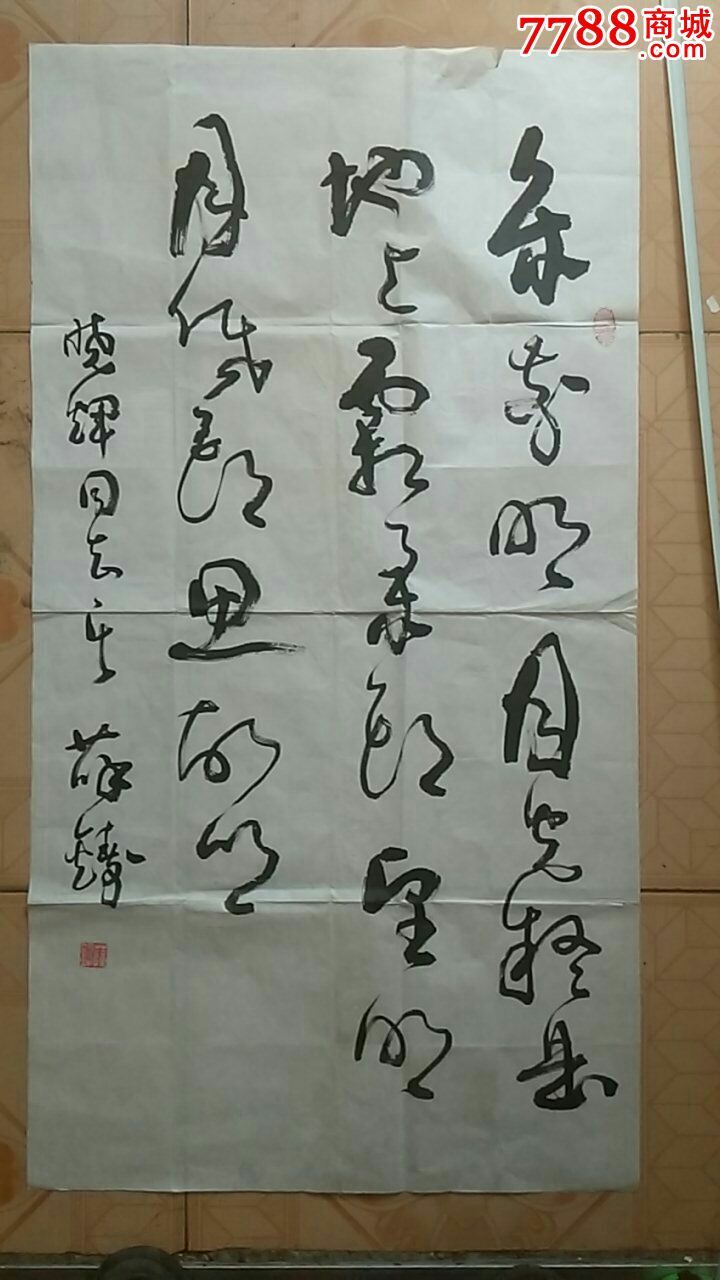 7788商城
.com
床前明月光疑是
地上霜举头望明
月低头思故乡
晓辉同志正 薛铸